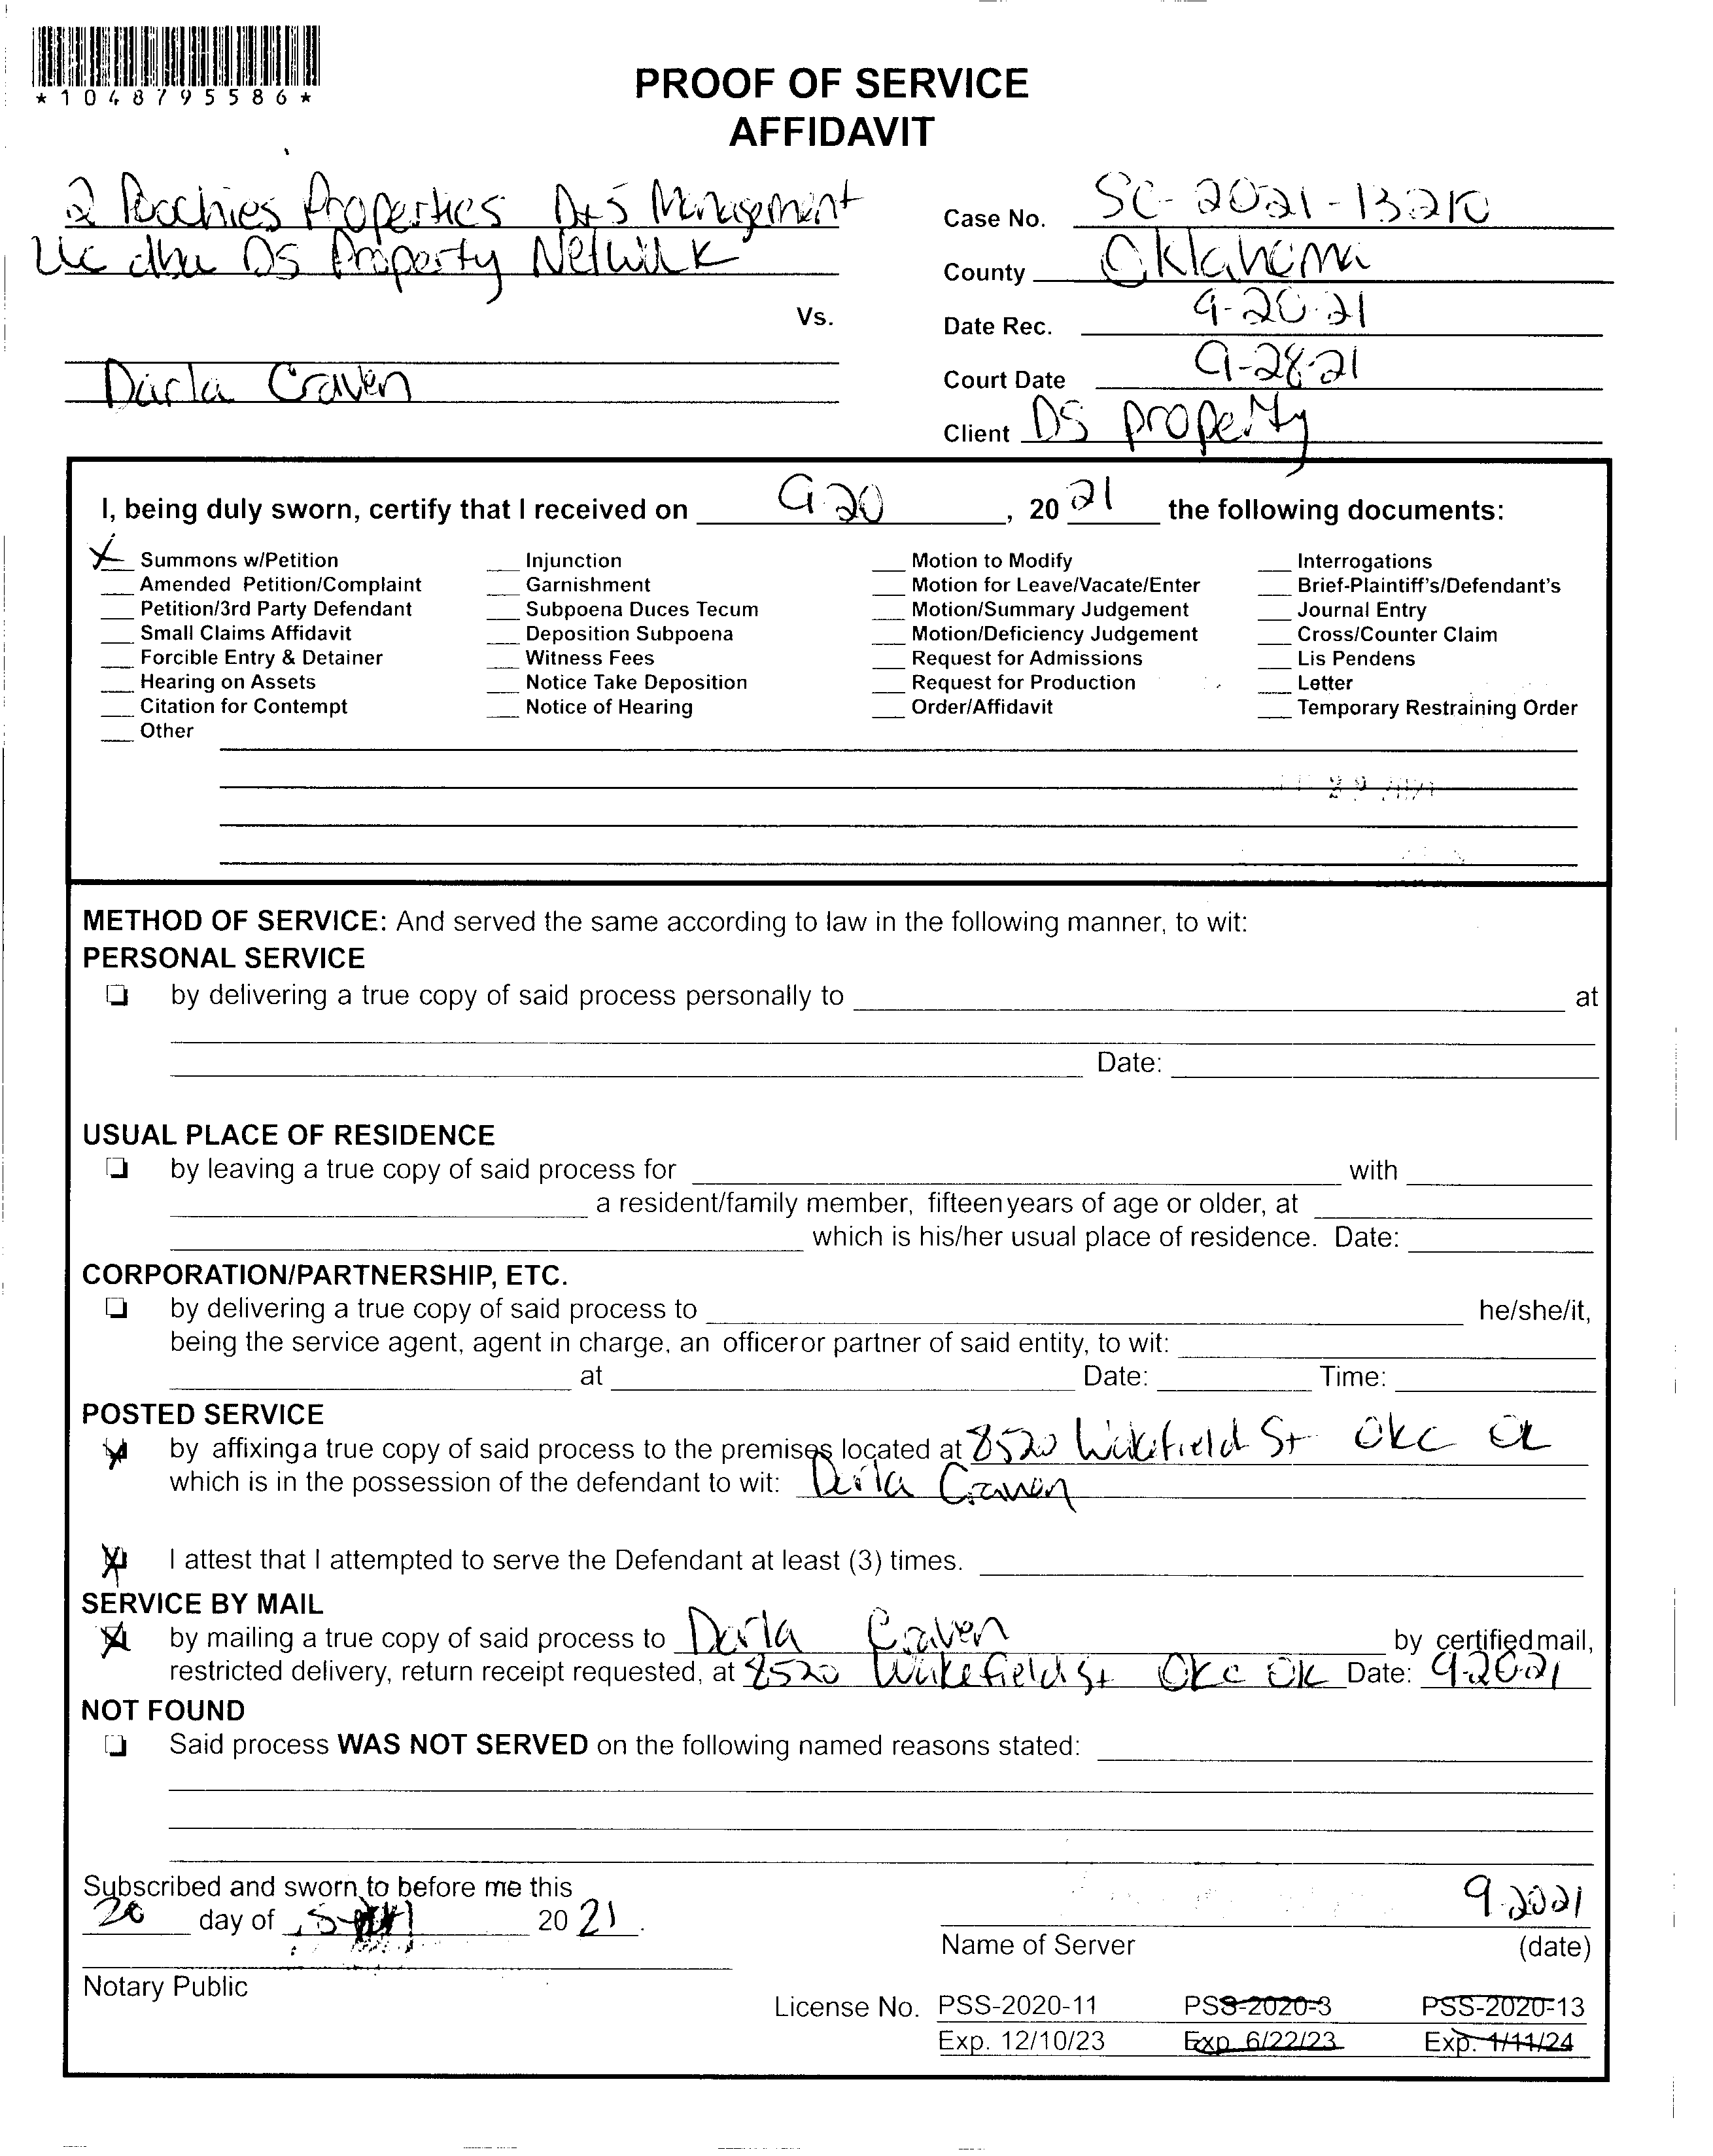 *1048795586*
PROOF OF SERVICE
AFFIDAVIT
2 Poochies Properties D+S Management
llc dba DS Property Network
Vs.
Darla Craven
Case No. SC-2021-13210
County Oklahoma
Date Rec. 9-20-21
Court Date 9-28-21
Client DS property
I, being duly sworn, certify that I received on 9-20, 2021 the following documents:
X Summons w/Petition
Amended Petition/Complaint
Petition/3rd Party Defendant
Small Claims Affidavit
Forcible Entry & Detainer
Hearing on Assets
Citation for Contempt
Other
Injunction
Garnishment
Subpoena Duces Tecum
Deposition Subpoena
Witness Fees
Notice Take Deposition
Notice of Hearing
Motion to Modify
Motion for Leave/Vacate/Enter
Motion/Summary Judgement
Motion/Deficiency Judgement
Request for Admissions
Request for Production
Order/Affidavit
Interrogations
Brief-Plaintiff's/Defendant's
Journal Entry
Cross/Counter Claim
Lis Pendens
Letter
Temporary Restraining Order
METHOD OF SERVICE: And served the same according to law in the following manner, to wit:
PERSONAL SERVICE
by delivering a true copy of said process personally to at
Date:
USUAL PLACE OF RESIDENCE
by leaving a true copy of said process for with
a resident/family member, fifteen years of age or older, at
which is his/her usual place of residence. Date:
CORPORATION/PARTNERSHIP, ETC.
by delivering a true copy of said process to he/she/it,
being the service agent, agent in charge, an officer or partner of said entity, to wit:
at Date: Time:
POSTED SERVICE
X by affixing a true copy of said process to the premises located at 8520 Wakefield St OKC OK
which is in the possession of the defendant to wit: Darla Craven
X I attest that I attempted to serve the Defendant at least (3) times.
SERVICE BY MAIL
X by mailing a true copy of said process to Darla Craven by certified mail,
restricted delivery, return receipt requested, at 8520 Wakefield St OKC OK Date: 9-20-21
NOT FOUND
Said process WAS NOT SERVED on the following named reasons stated:
Subscribed and sworn to before me this
20 day of 2021.
Notary Public
9-20-21
Name of Server (date)
License No. PSS-2020-11 PSS-2020-3 PSS-2020-13
Exp. 12/10/23 Exp. 6/22/23 Exp. 1/11/24